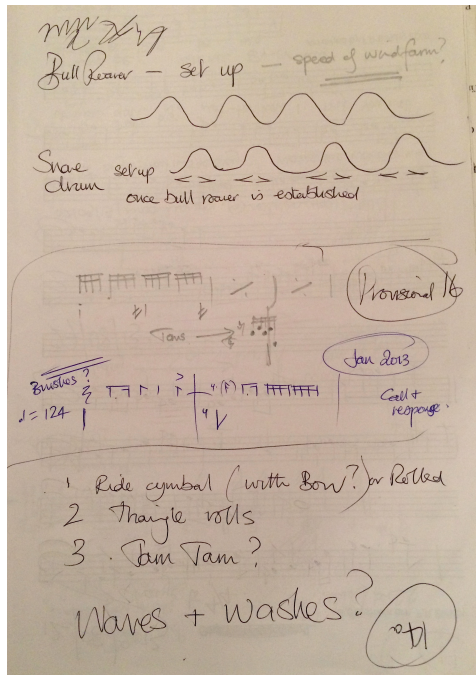 Bull Roarer — set up — speed of windfarm?
Snare drum set up
once bull roarer is established
Provisional 16
Toms →
Jan 2013
Brushes?
♩ = 124
Call + response.
1 Ride cymbal (with Bow?) or Rolled
2 triangle rolls
3 . Tam Tam?
Waves + washes?
14a